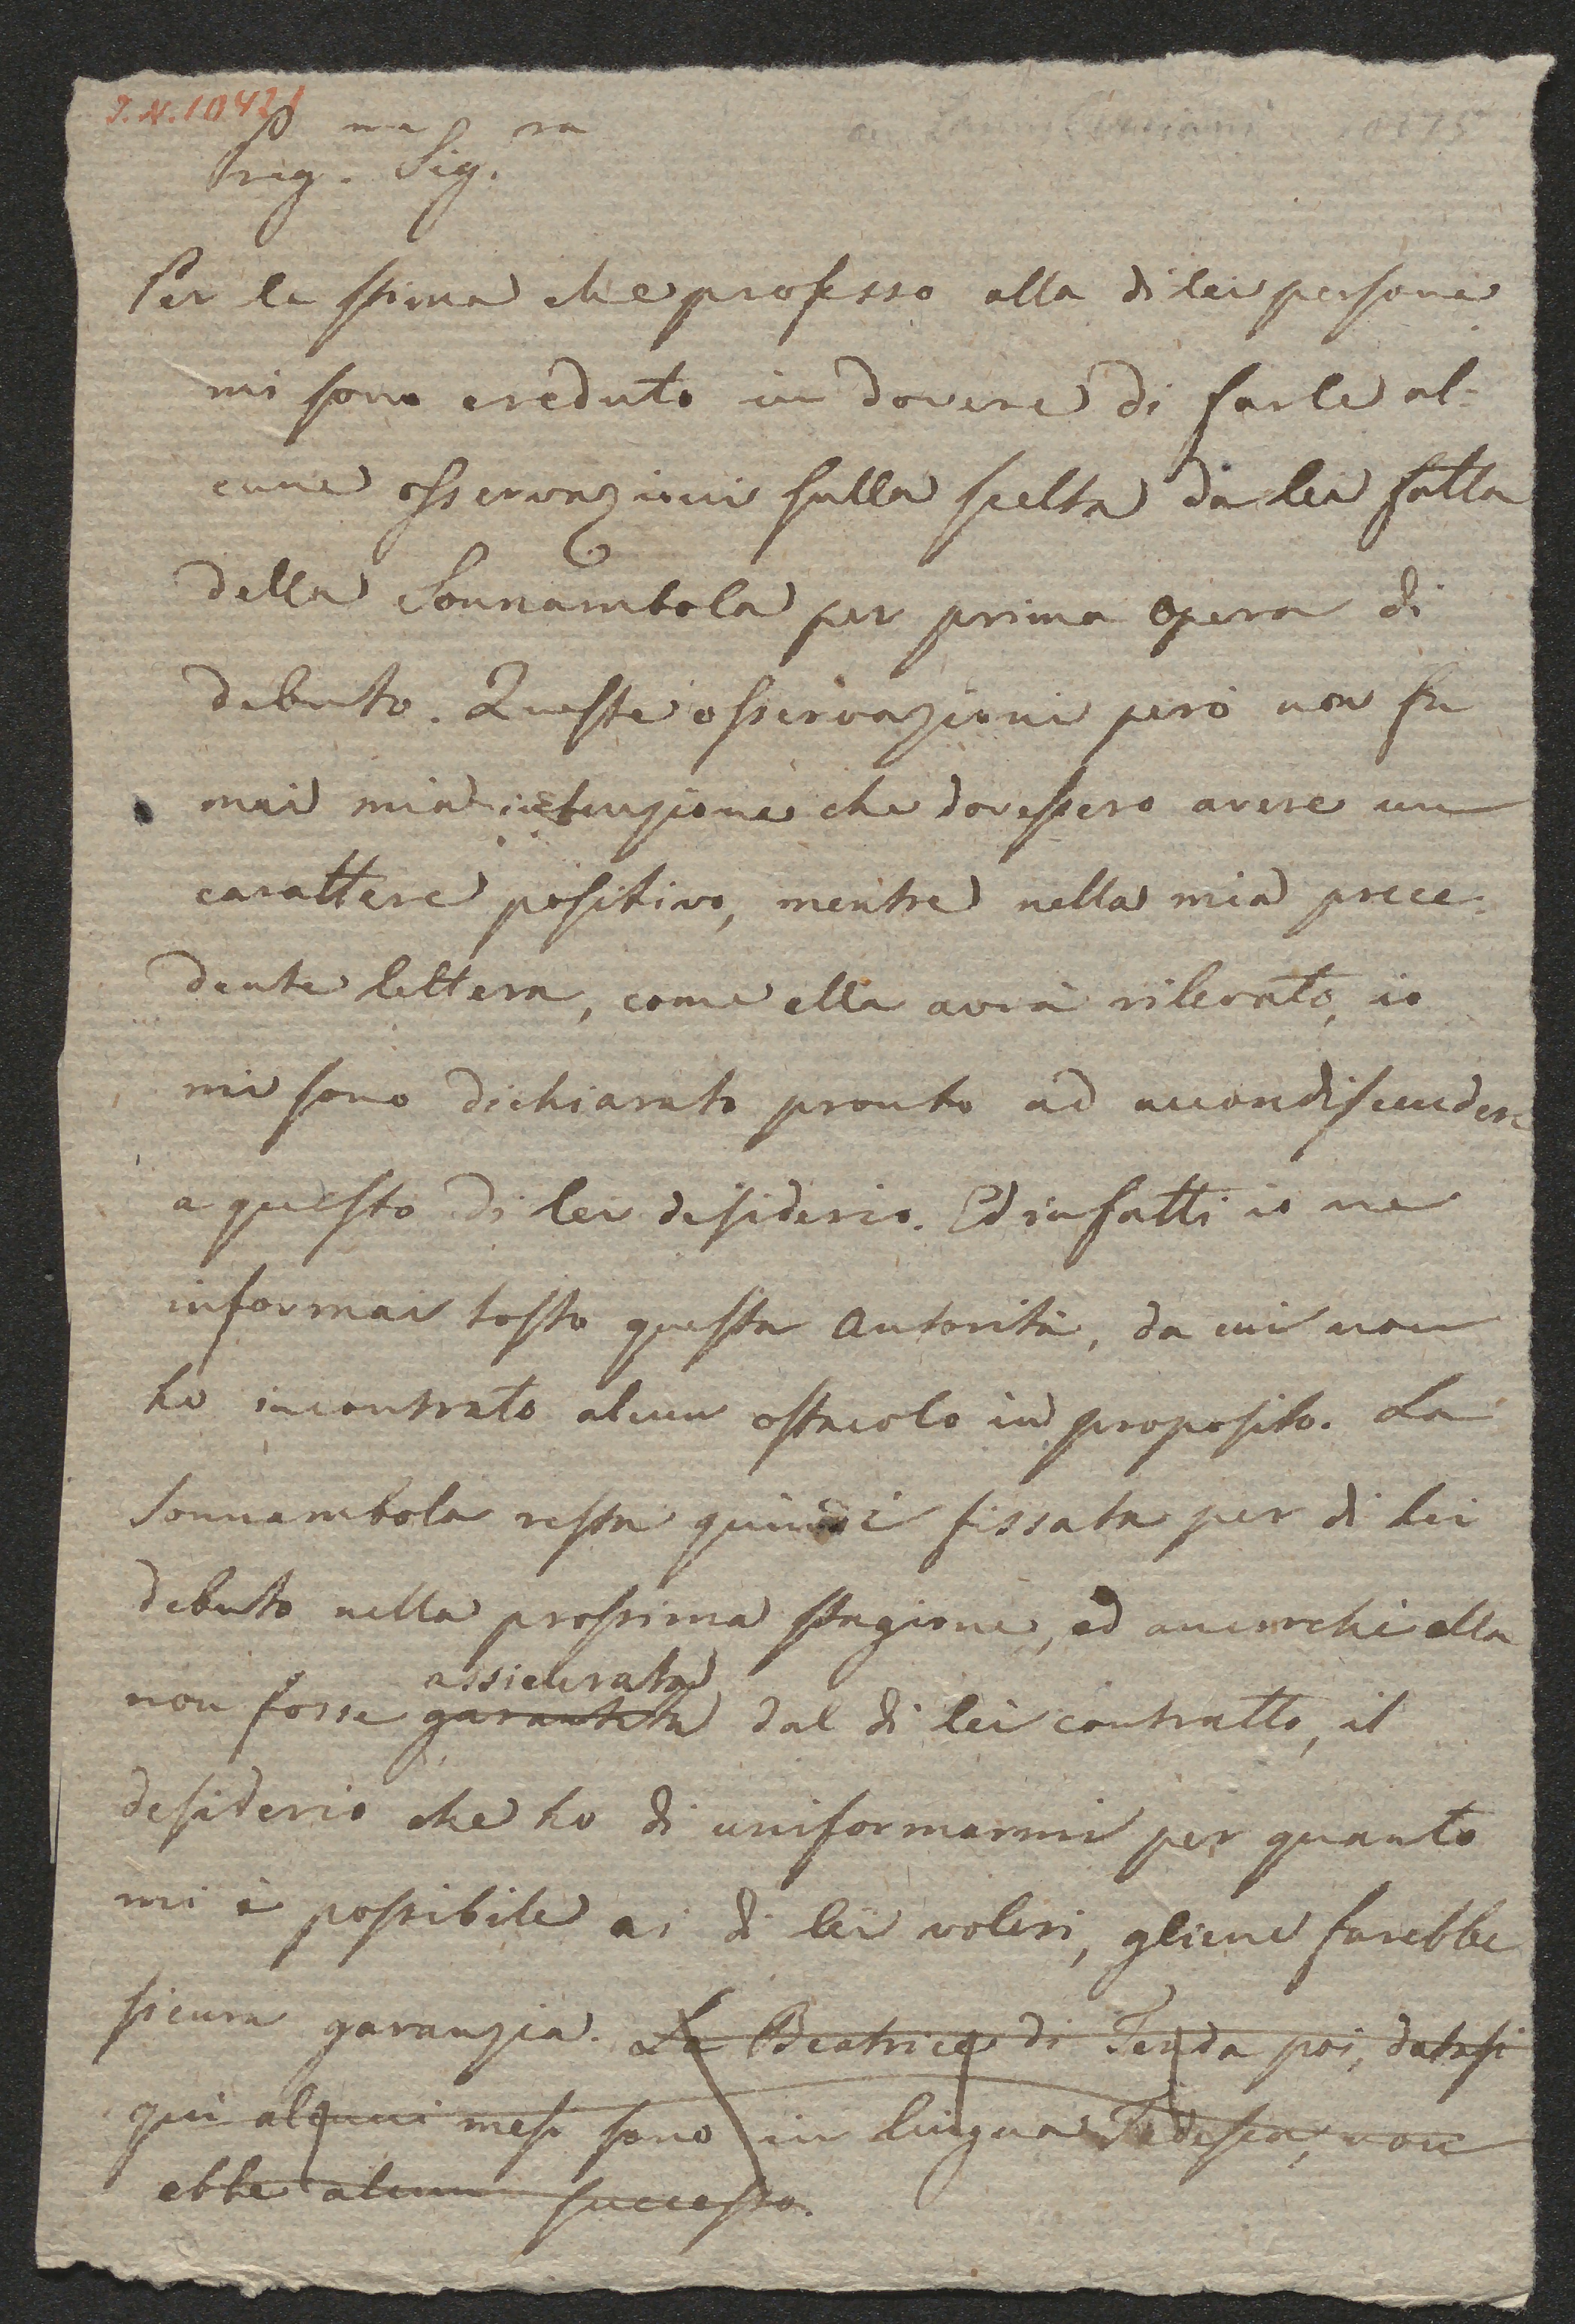 I.N. 10421
Preg.ma Sig.ra
Per la stima che professo alla di lei persona
mi sono creduto in dovere di farle al-
cune osservazioni sulla scelta da lei fatta
della Sonnambola per prima opera di
debuto. Queste osservazioni però non fu
mai mia intenzione che dovessero avere un
carattere positivo, mentre nella mia prece-
dente lettera, come ella avrà rilevato, io
mi sono dichiarato pronto ad accondiscendere
a questo di lei desiderio. Ed infatti io ne
informai tosto questa Autorità, da cui non
ho incontrato alcun ostacolo in proposito. La
Sonnambola resta quindi fissata per di lei
debuto nella prossima stagione, ed ancorchè ella
assicurata
non fosse garantita dal di lei contratto, il
desiderio che ho di uniformarmi per quanto
mi è possibile ai di lei voleri, gliene farebbe
sicura garanzia. La Beatrice di Tenda poi, datasi
qui alcuni mesi sono in lingua Tedesca, non
ebbe alcun successo.